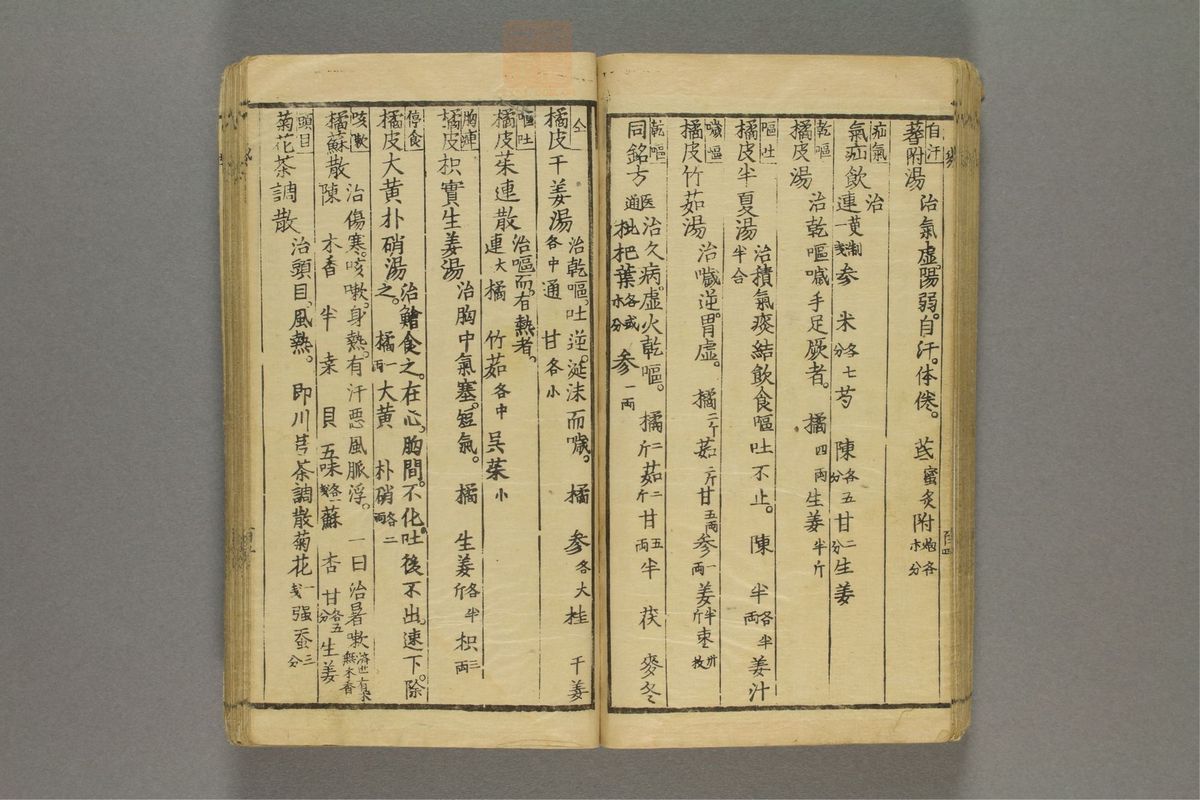 自汗
蓍附湯 治氣虛。陽弱。自汗。体倦。 芪 蜜炙 附 炮各
疝氣
氣疝飮 治 連 黄制 一戋 参 米 各七分 芍 陳 各五分 甘 二分 生姜
乾嘔
橘皮湯 治乾嘔噦手足厥者。 橘 四両 生姜 半斤
嘔吐
橘皮半夏湯 治積氣痰結飮食嘔吐不止。 陳 半 各半両 姜汁 半合
噦嘔
橘皮竹茹湯 治噦逆。胃虛。 橘 二斤 茹 二斤 甘 五両 参 一両 姜 半斤 枣 卅枚
乾嘔
同銘方 医通 治久病。虛火乾嘔。 橘 二斤 茹 二斤 甘 五両 半 茯 麥冬
枇杷葉 参 一両
仝
橘皮干姜湯 治乾嘔。吐逆。涎沫而噦。 橘 参 各大 桂 干姜
各中 通 甘 各小
嘔吐
橘皮茱連散 治嘔而。有熱者。
連 大 橘 竹茹 各中 呉茱 小
胸連
橘皮枳實生姜湯 治胸中氣塞。短氣。 橘 生姜 各半斤 枳 三両
停食
橘皮大黄朴硝湯 治鱠食之。在心胸間。不化。吐後不出。速下。除
之。 橘 一両 大黄 朴硝 各二両
咳嗽
橘蘇散 治傷寒。咳嗽。身熱。有汗悪風脈浮。一曰治暑嗽
陳 木香 半 桒 貝 五味 各一戋 蘇 杏 甘 各五分 生姜
頭目
菊花茶調散 治頭目。風熱。 即川芎茶調散菊花 一戋 强蚕 三分